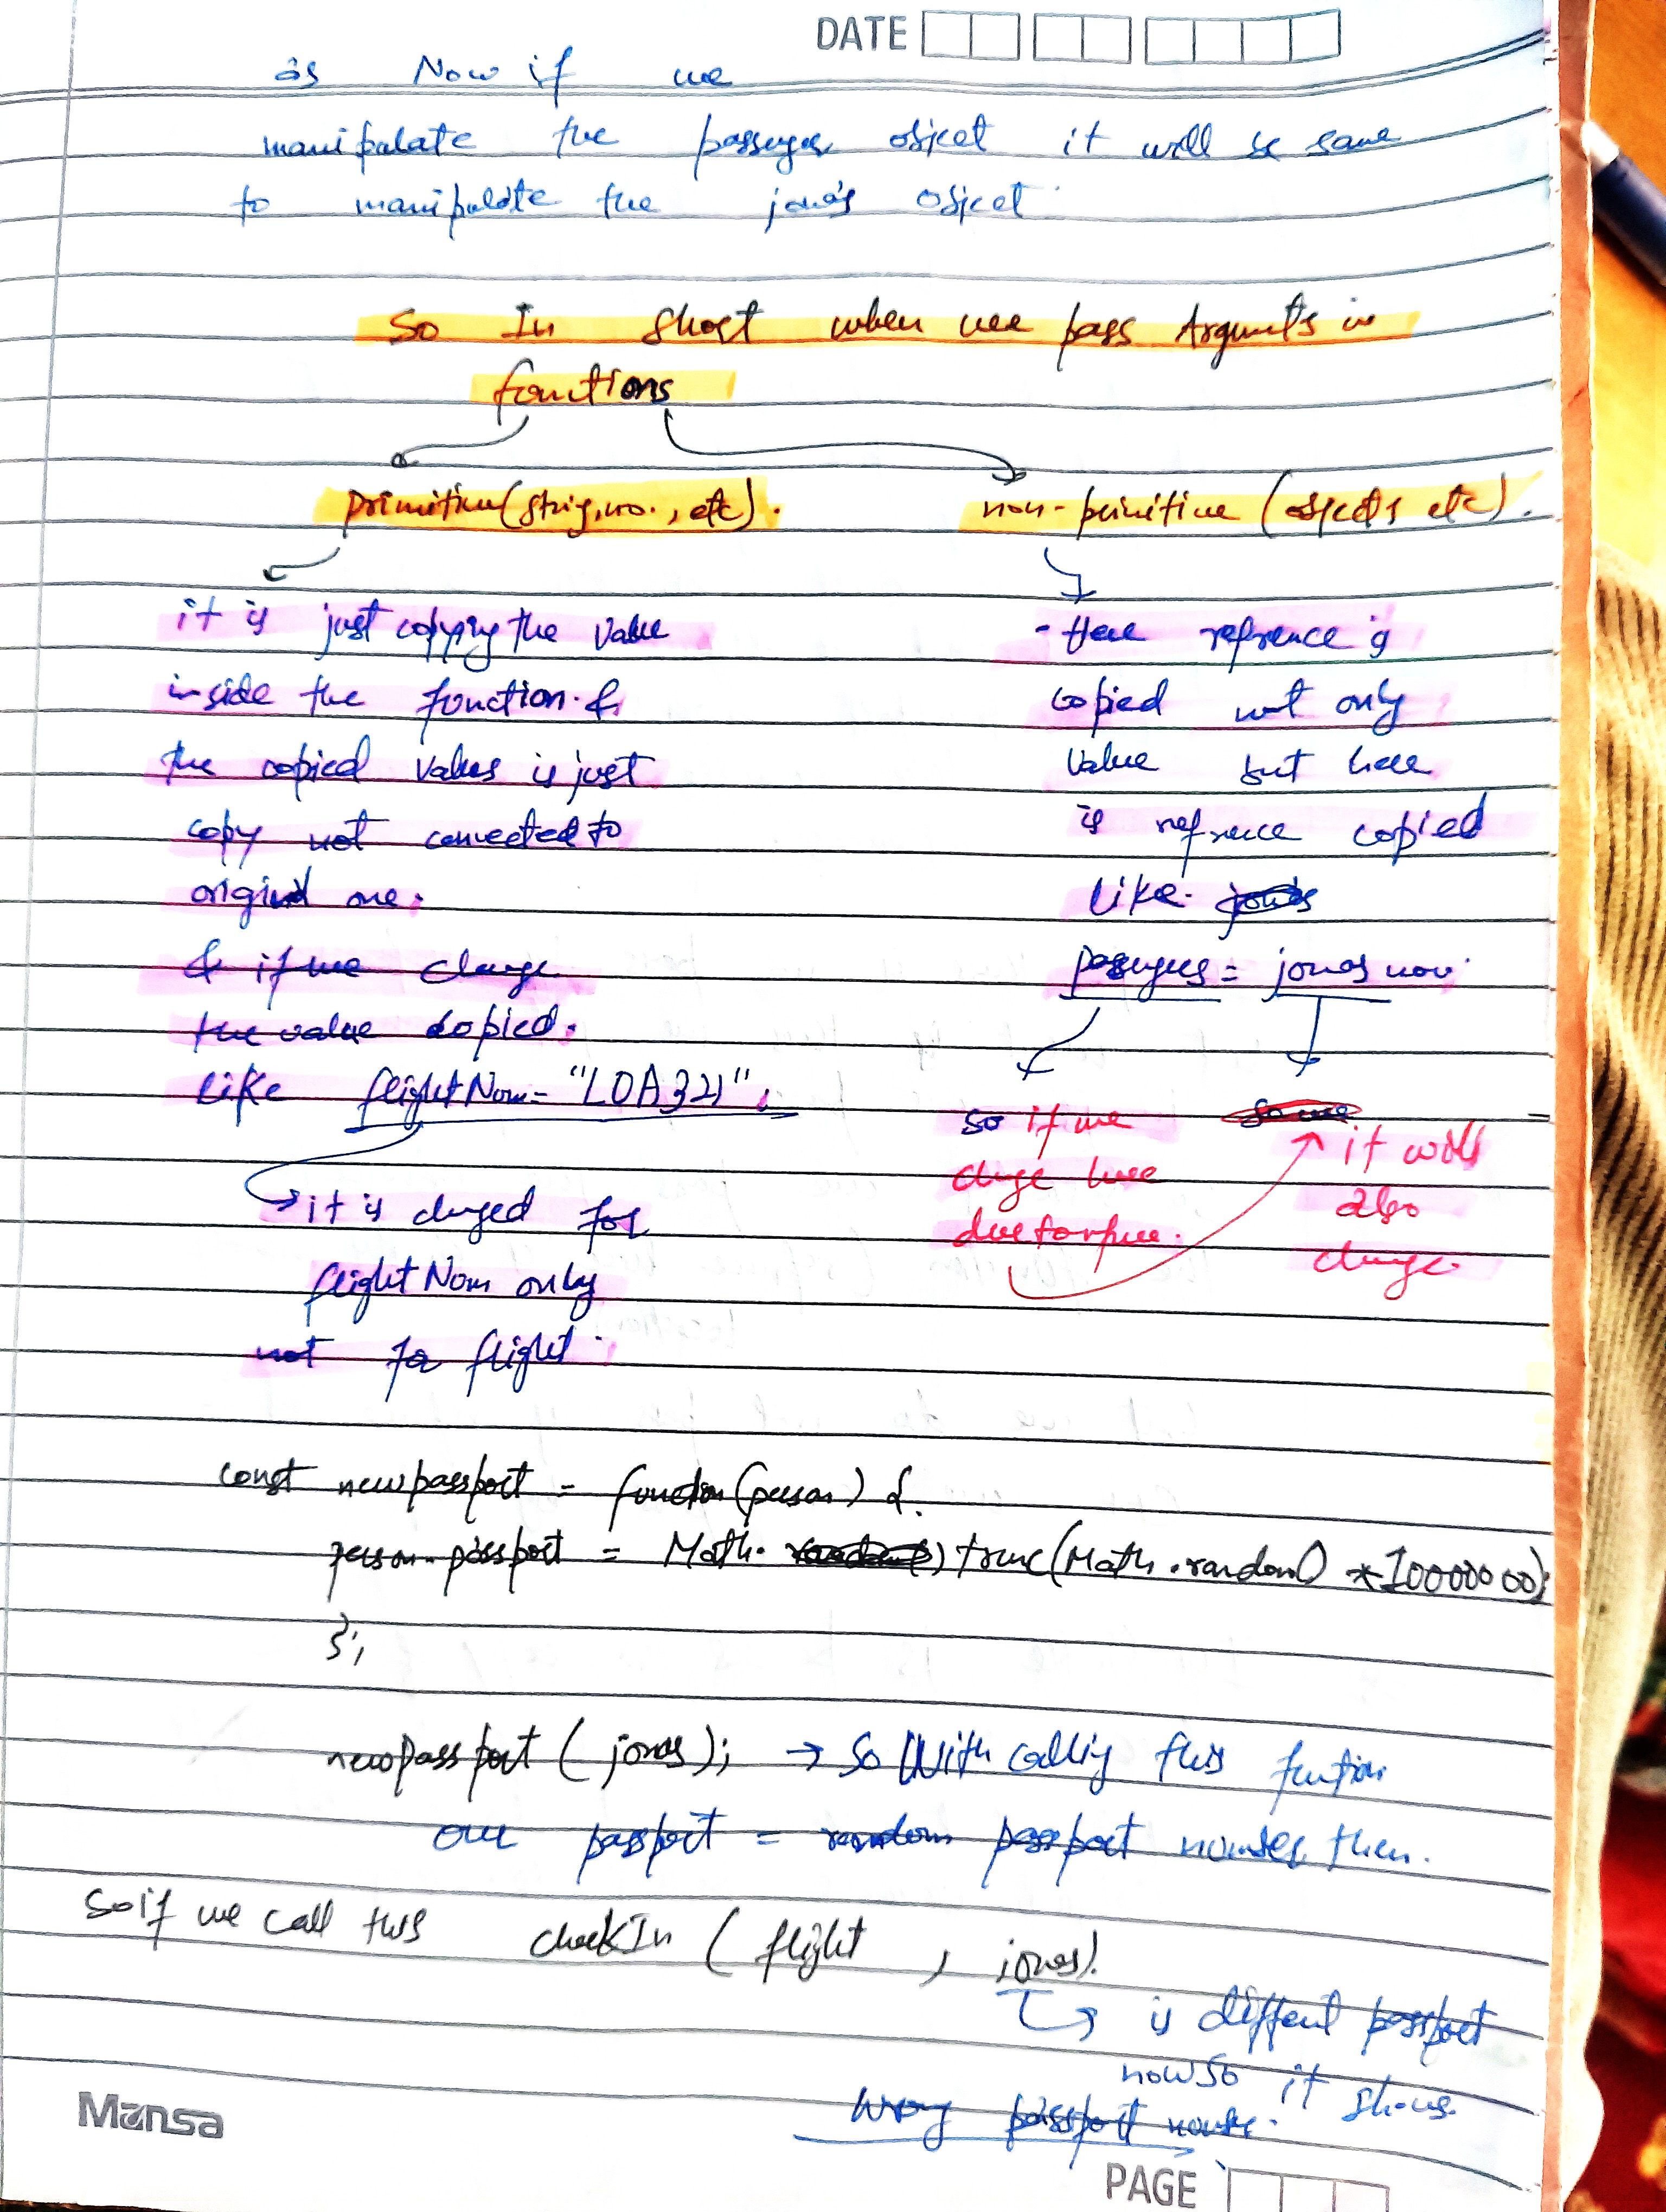 DATE
as Now if we
manipulate the passenger object it will be same
to manipulate the jonas object.
So In Short when we pass Arguments in
functions
primitive (string, no., etc).
non-primitive (objects etc).
it is just copying the value
inside the function. &
the copied values is just
copy not connected to
original one.
& if we change
the value copied.
like flightNum = "LOA321";
it is changed for
flightNum only
not for flight.
- Here refrence is
copied not only
value but here
is refrence copied
like. jonas
passengers = jonas now.
so if we
change here
due to
so we
it will
also
change.
const newpassport = function(person) {.
person.passport = Math. trunc(Math.random() * 100000000);
};
newpassport ( jonas); → So With calling this function
our passport = random passport number then.
So if we call this checkIn ( flight , jonas).
is different passport
now so it shows
wrong passport number.
Mansa
PAGE